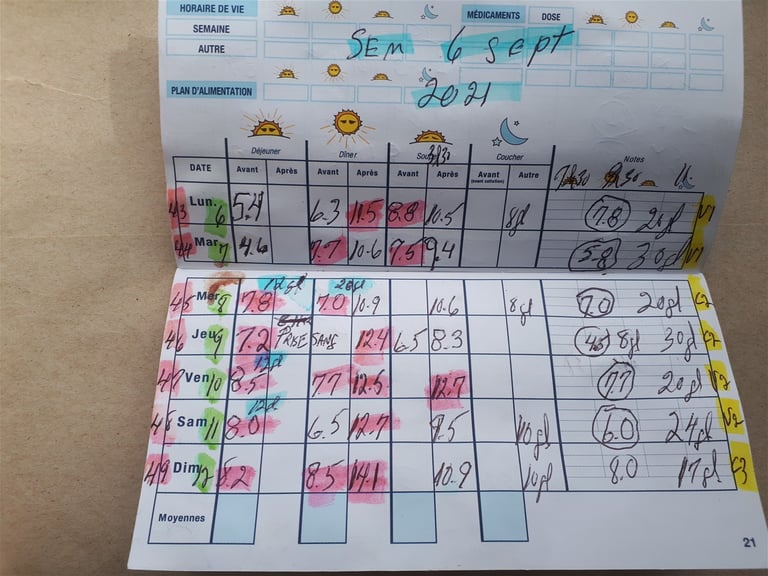 HORAIRE DE VIE
MÉDICAMENTS DOSE
SEMAINE
AUTRE
SEM 6 sept
PLAN D'ALIMENTATION
2021
Déjeuner Dîner Coucher Notes
DATE Avant Après Avant Après Avant Après Avant (avant collation) Autre
43 Lun. 6 5.4 6.3 11.5 8.8 10.5 8gl 7.8 20gl V1
44 Mar 7 4.6 7.7 10.6 9.5 9.4 5.8 30gl V1
12gl 20gl
45 Mer 8 7.8 7.0 10.9 10.6 8gl 7.0 20gl C2
46 Jeu 9 7.2 PRISE SANG 12.4 6.5 8.3 8gl 30gl C2
47 Ven 10 8.5 7.7 12.5 12.7 7.7 20gl V2
Sam 11 8.0 6.5 12.7 9.5 10gl 6.0 24gl V2
49 Dim 12 8.2 8.5 14.1 10.9 10gl 8.0 17gl C3
Moyennes
21